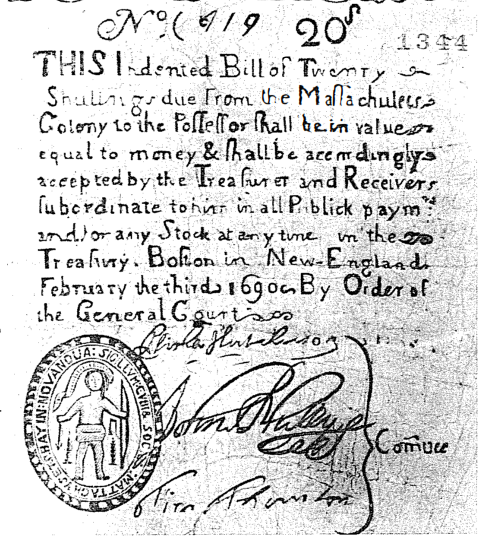 No (619 20s
1344
THIS Indented Bill of Twenty
Shillings due from the Maſſachuſets
Colony to the Poſſeſſor ſhall be in value
equal to money & ſhall be accordingly
accepted by the Treaſurer and Receivers
ſubordinate to him in all Publick paymts
and for any Stock at any time in the
Treaſury. Boſton in New-England
February the third 1690 By Order of
the General Court
Eliſha Hutchinson
Tim. Thornton
Comtee